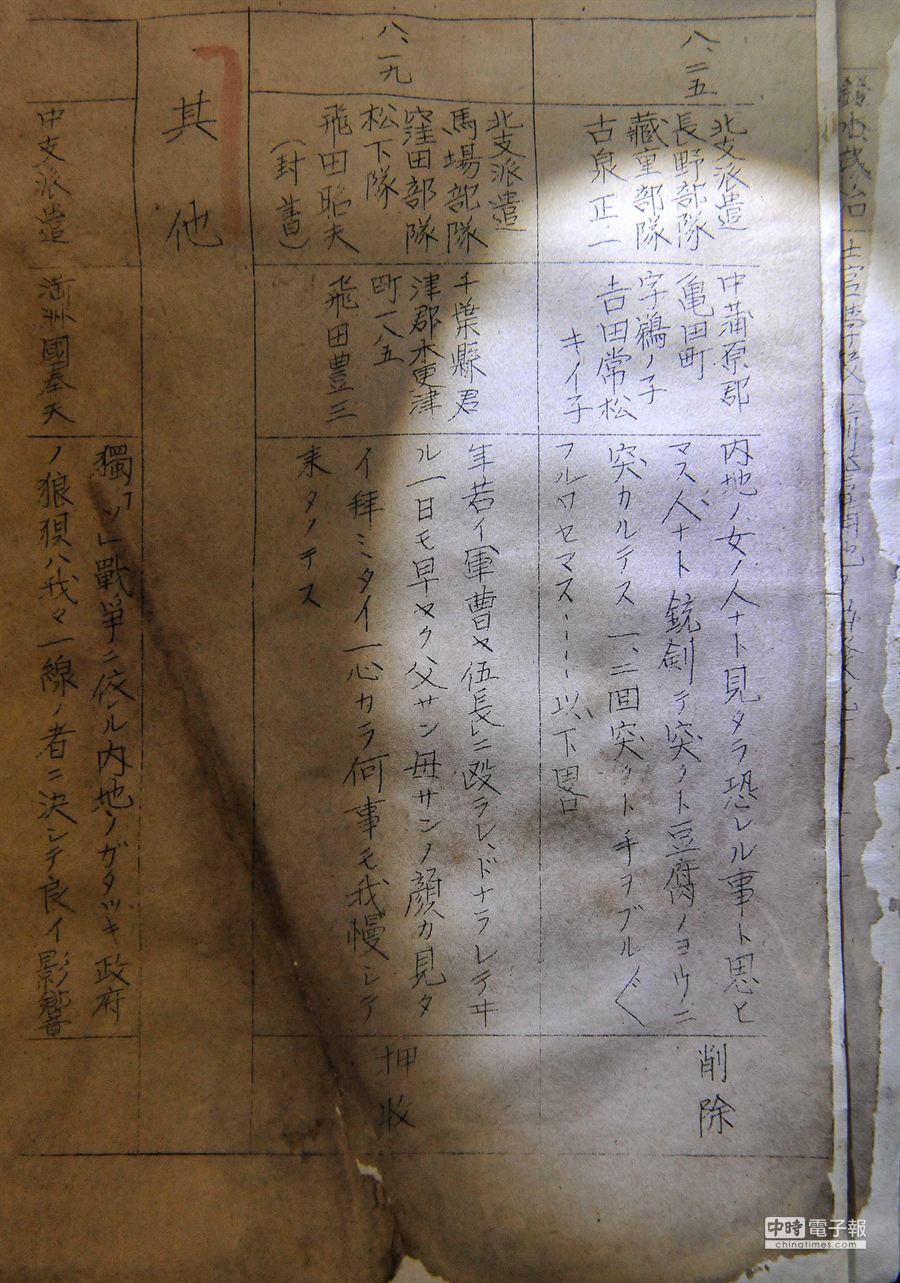 八、二五
北支派遣
長野部隊
藏重部隊
古泉正一
中蒲原郡
亀田町
字鵜ノ子
吉田常松
キイ子
内地ノ女ノ人ナド見タラ恐レル事ト思ヒ
マス、人ナド銃剣デ突クト豆腐ノヨウニ
突カルデス 一、二回突クト手ヲブル〱
フルワセマス……以下畧
削除
八、一九
北支派遣
馬場部隊
窪田部隊
松下隊
飛田昭夫
（封書）
千葉縣君
津郡木更津
町一八五
飛田豊三
年若イ軍曹ヤ伍長ニ殴ラレ、ドナラレテヰ
ル一日モ早ヤク父サン母サンノ顔カ見タ
イ拜ミタイ一心カラ何事モ我慢シテ
来タノテス
押收
其他
中支派遣
満洲國奉天
獨「ソ」戰爭ニ依ル内地ノガタツキ政府
ノ狼狽ハ我々一線ノ者ニ決シテ良イ影響
中時電子報
chinatimes.com